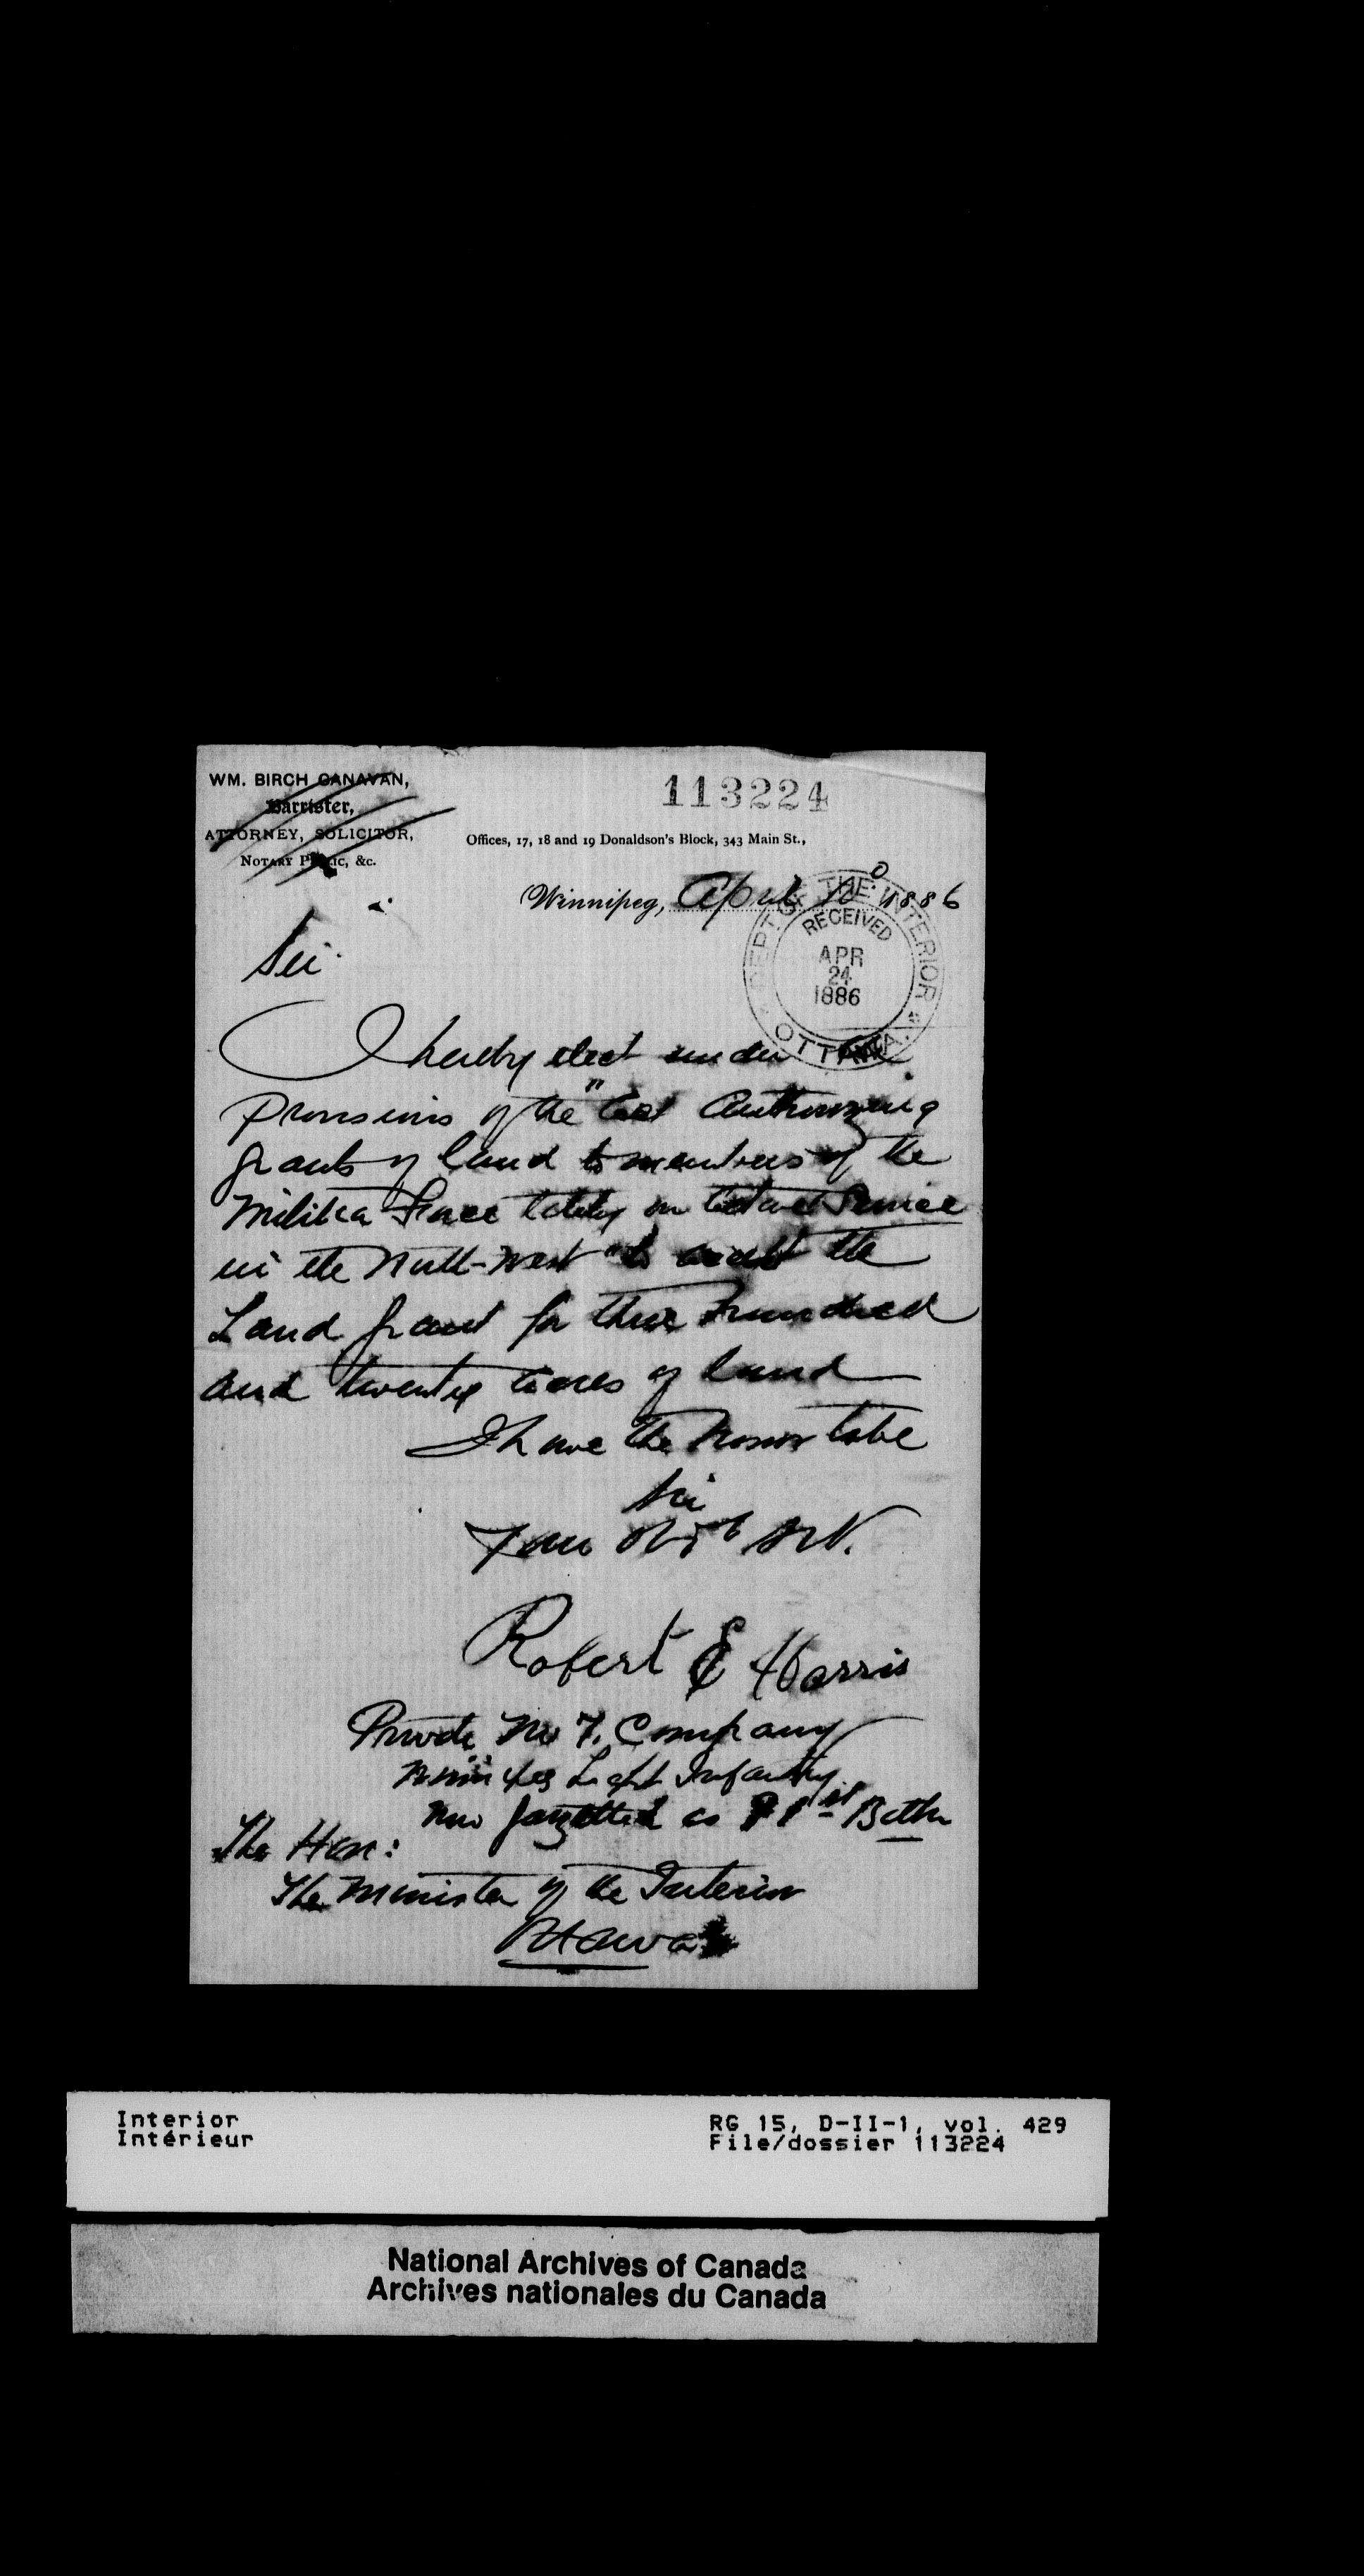 WM. BIRCH CANAVAN,
Barrister,
ATTORNEY, SOLICITOR,
NOTARY PUBLIC, &c.
113224
Offices, 17, 18 and 19 Donaldson's Block, 343 Main St.,
Winnipeg, April 10 1886
DEPT. OF THE INTERIOR
RECEIVED
APR
24
1886
OTTAWA.
Sir
I hereby elect under the
provisions of the "Act Authorizing
grants of land to members of the
Militia Force lately on Active Service
in the North-West" to accept the
Land grant for three hundred
and twenty acres of land
I have the honor to be
Sir
Your Obt Svt.
Robert E Harris
Private No 7. Company
Winnipeg Light Infantry
now gazetted as 91st Battn
The Hon:
The Minister of the Interior
Ottawa
Interior
Intérieur
RG 15, D-II-1, vol. 429
File/dossier 113224
National Archives of Canada
Archives nationales du Canada